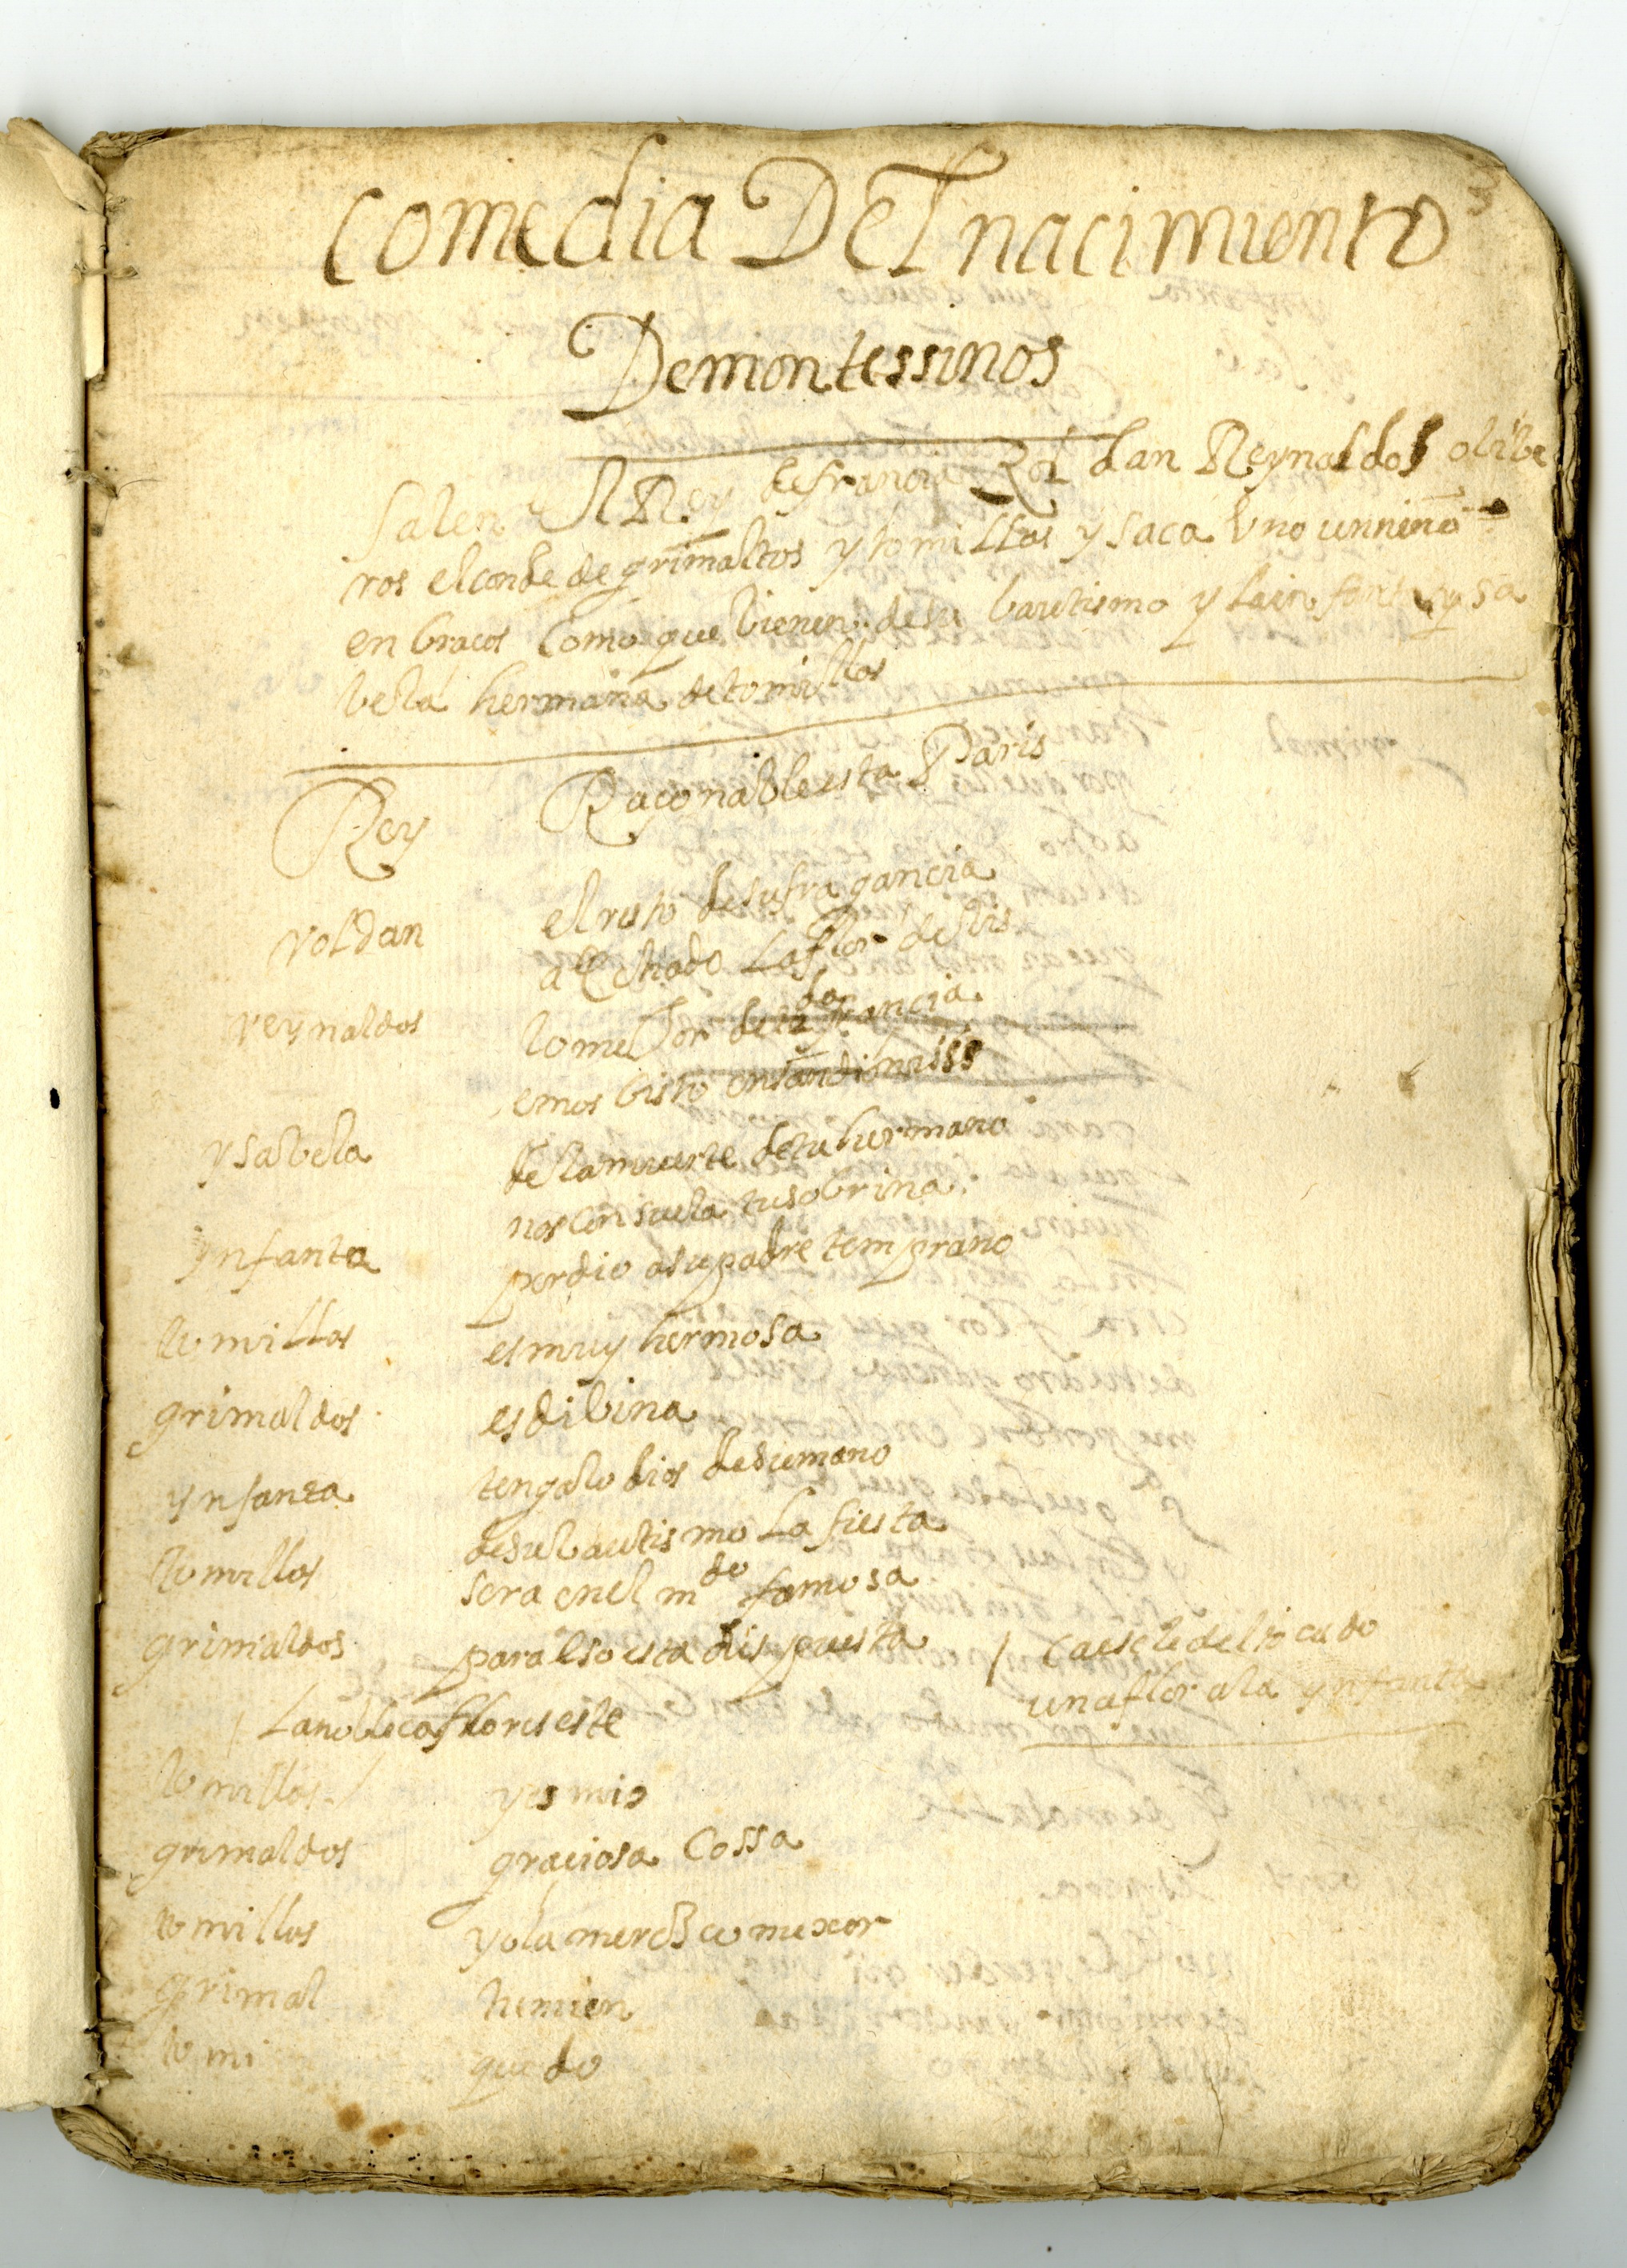 Comedia Del nacimiento
De montessinos
salen El Rey de francia Roldan Reynaldos olibe
ros el conde de grimaltos y tomillas y saca Uno un nino
en bracos Como que bienen de su bautismo y la infanta ysa
bela hermana de tomillas
Rey Raçonable esta Paris
roldan el resto de su fragancia
a Echado La flor de lis
reynaldos lo mejor de toda francia
emos bisto en san dioniss
ysabela de la muerte de tu hermano
nos consuela tu sobrina
ynfanta perdio a su padre temprano
tomillas es muy hermosa
grimaldos es dibina
ynfanta tengalo dios de su mano
tomillas de su bautismo La fiesta
sera en el mdo famosa
grimaldos para eso esta dispuesta
/ Caesele del tocado
una flor a la ynfanta
La nobleça flor es este
tomillas yes mio
grimaldos graciosa Cossa
tomillas yo la merezco mexor
grimal
tomi quedo